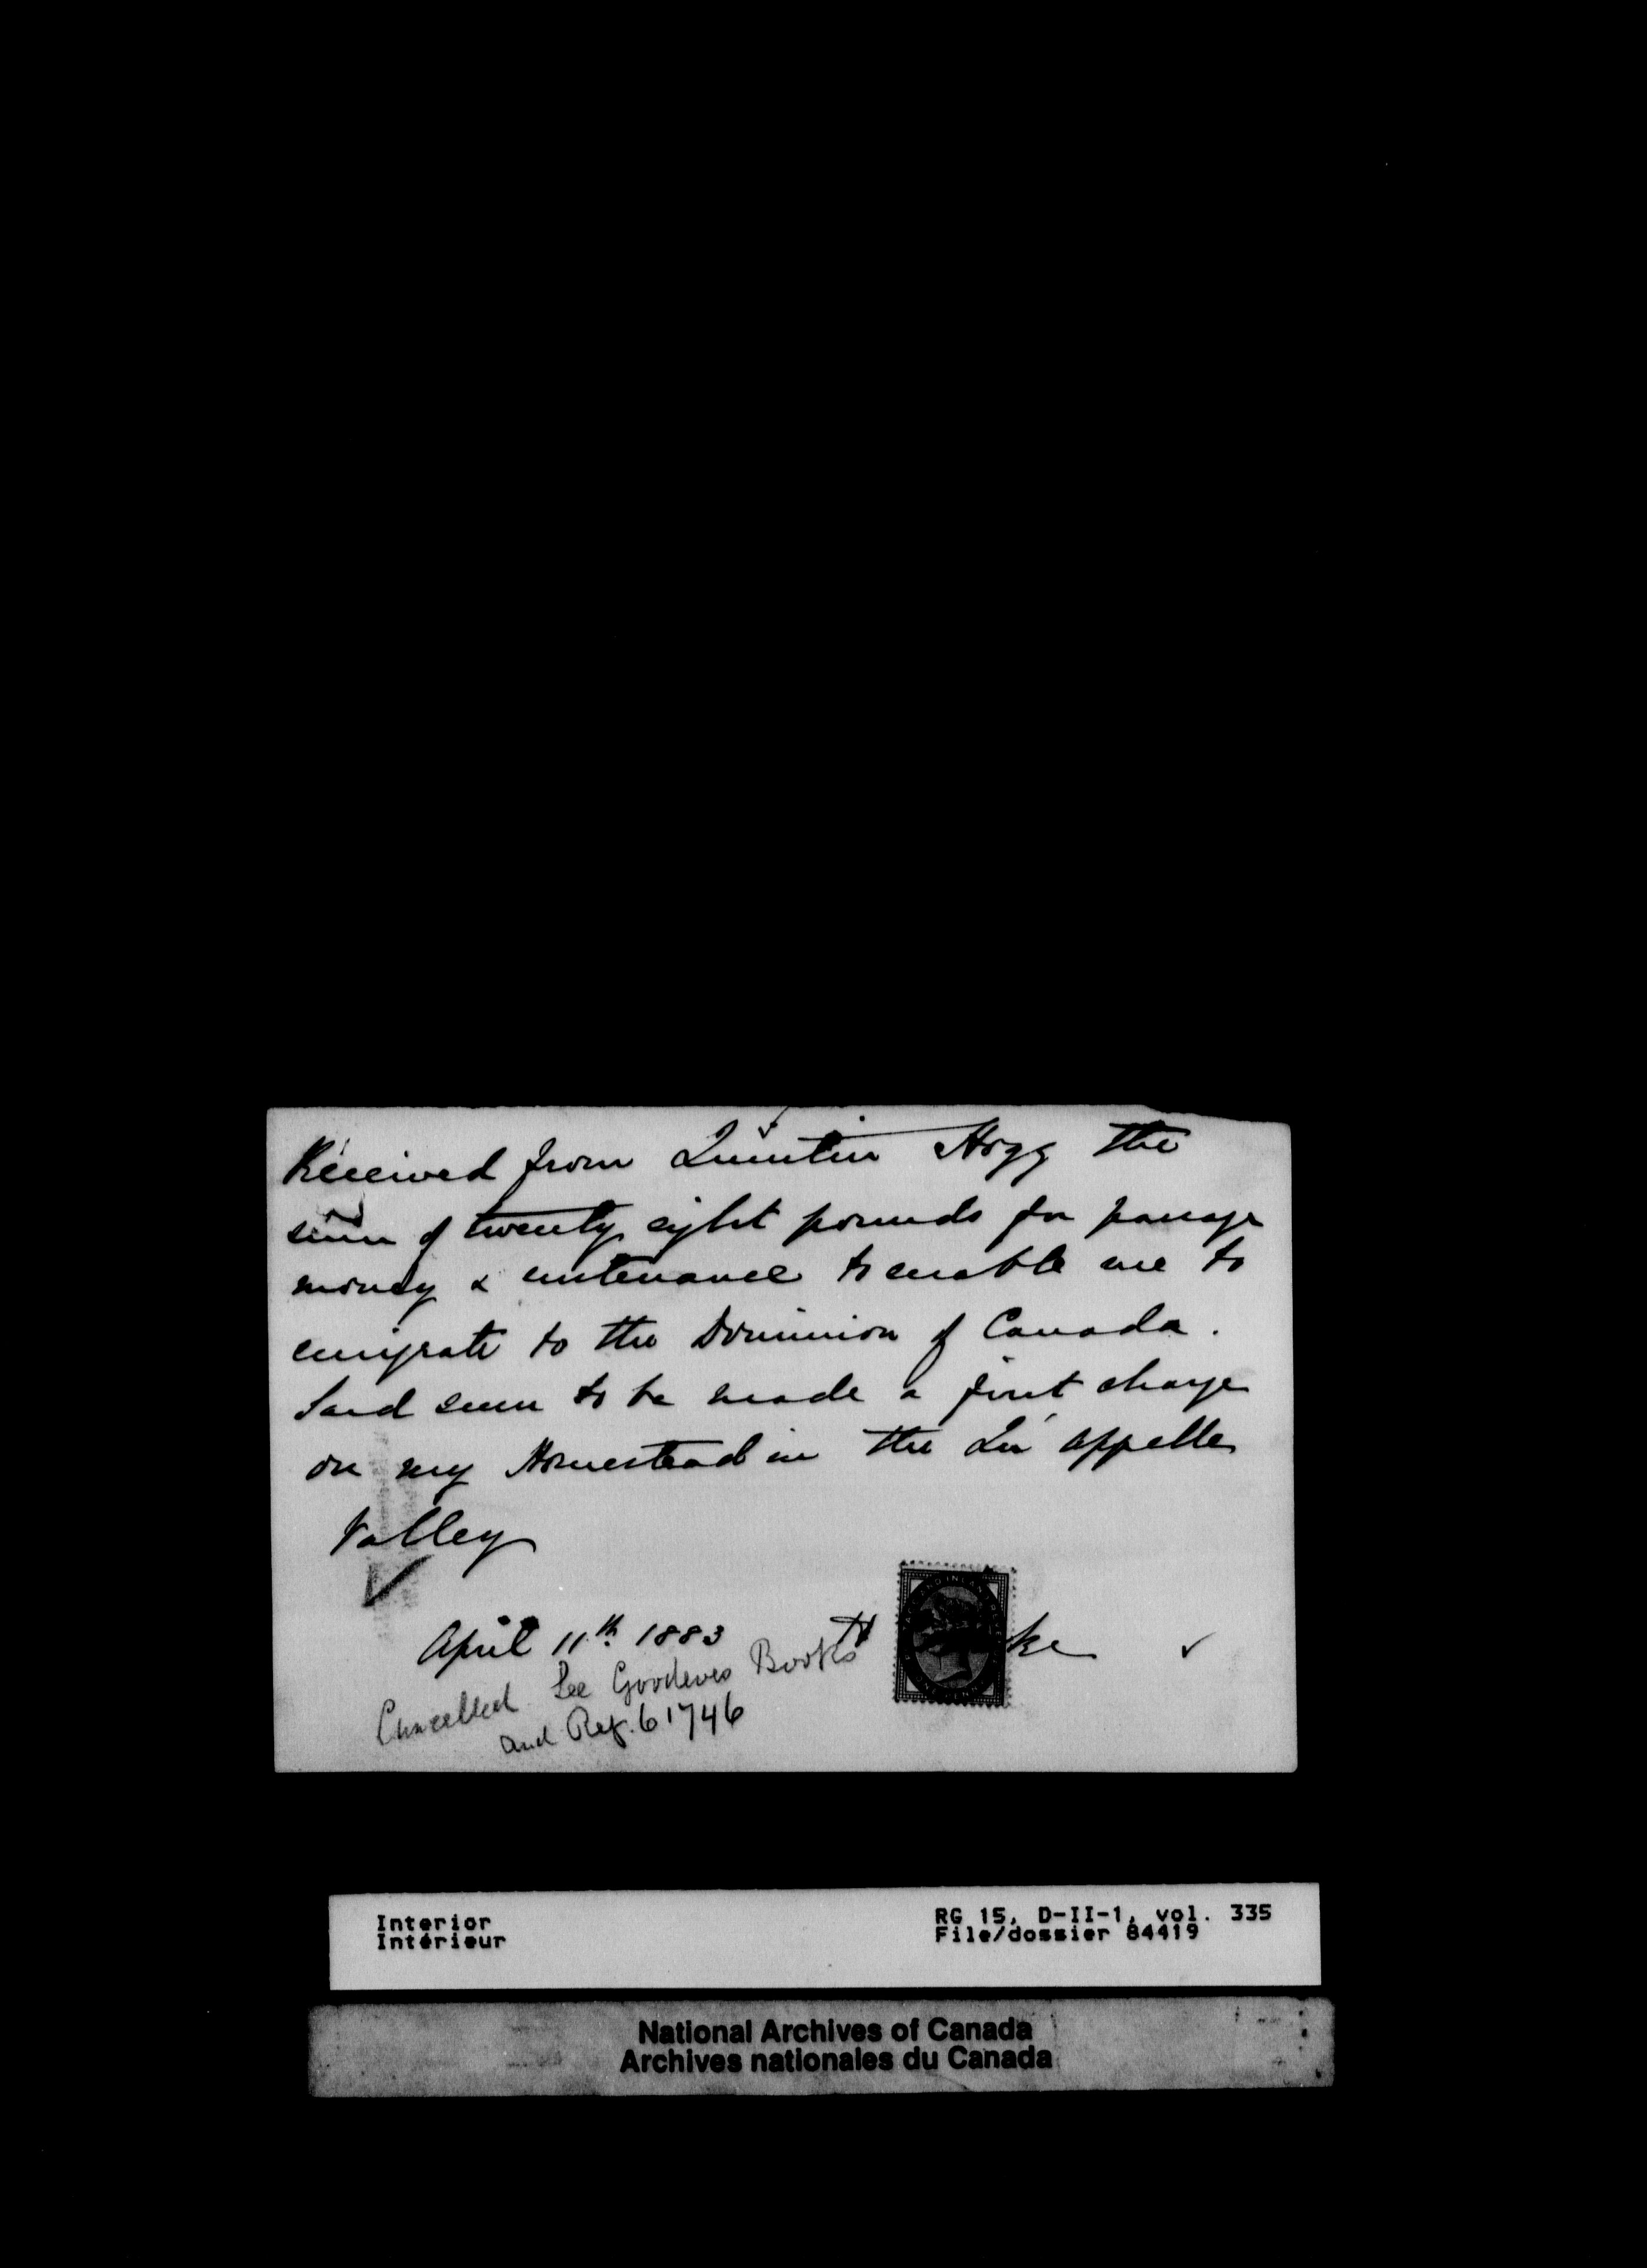 Received from Quintin Hogg the
sum of twenty eight pounds for passage
money & entenance to enable me to
emigrate to the Dominion of Canada.
Said sum to be made a first charge
on my Homestead in the Qu'appelle
Valley
April 11th 1883 H ke
Cancelled See Goodeves Books
and Ref. 61746
Interior
Intérieur
RG 15, D-II-1, vol. 335
File/dossier 84419
National Archives of Canada
Archives nationales du Canada